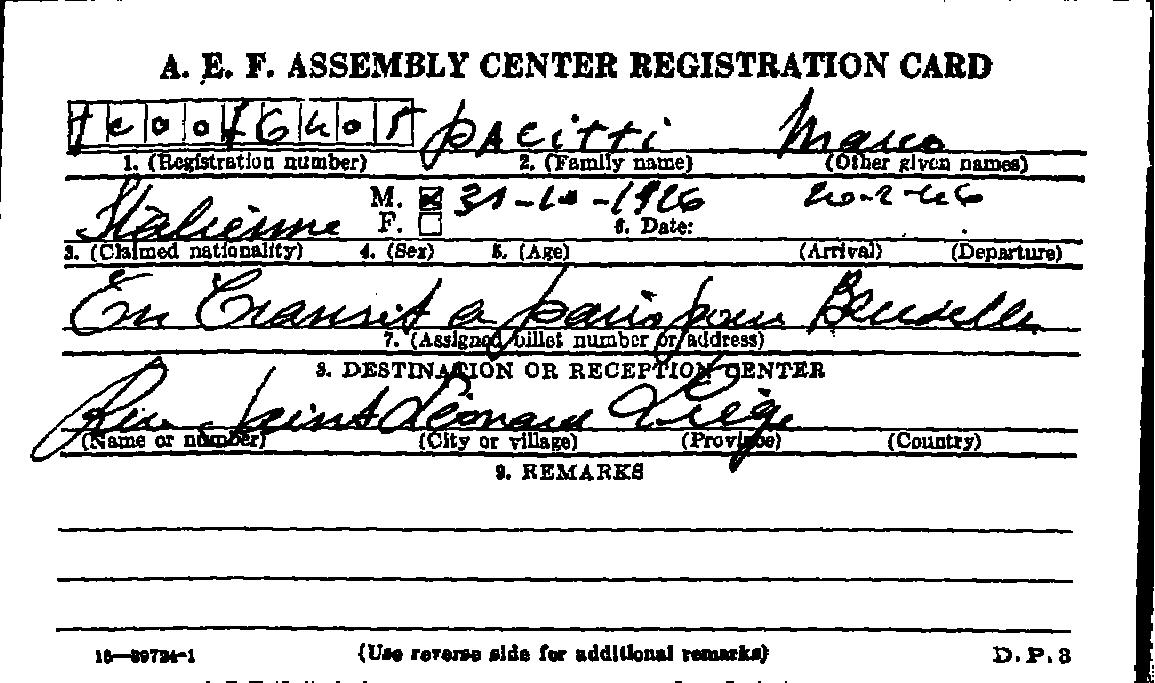 A. E. F. ASSEMBLY CENTER REGISTRATION CARD
pacitti Marco
1. (Registration number) 2. (Family name) (Other given names)
Italienne M. ☒ 31-10-1926 20-2-46
F. ☐ 6. Date:
3. (Claimed nationality) 4. (Sex) 5. (Age) (Arrival) (Departure)
En Transit a paris pour Bruxelle
7. (Assigned billet number or address)
8. DESTINATION OR RECEPTION CENTER
Rue Saint Léonard Liège
(Name or number) (City or village) (Province) (Country)
9. REMARKS
16—39724-1 (Use reverse side for additional remarks) D.P.3